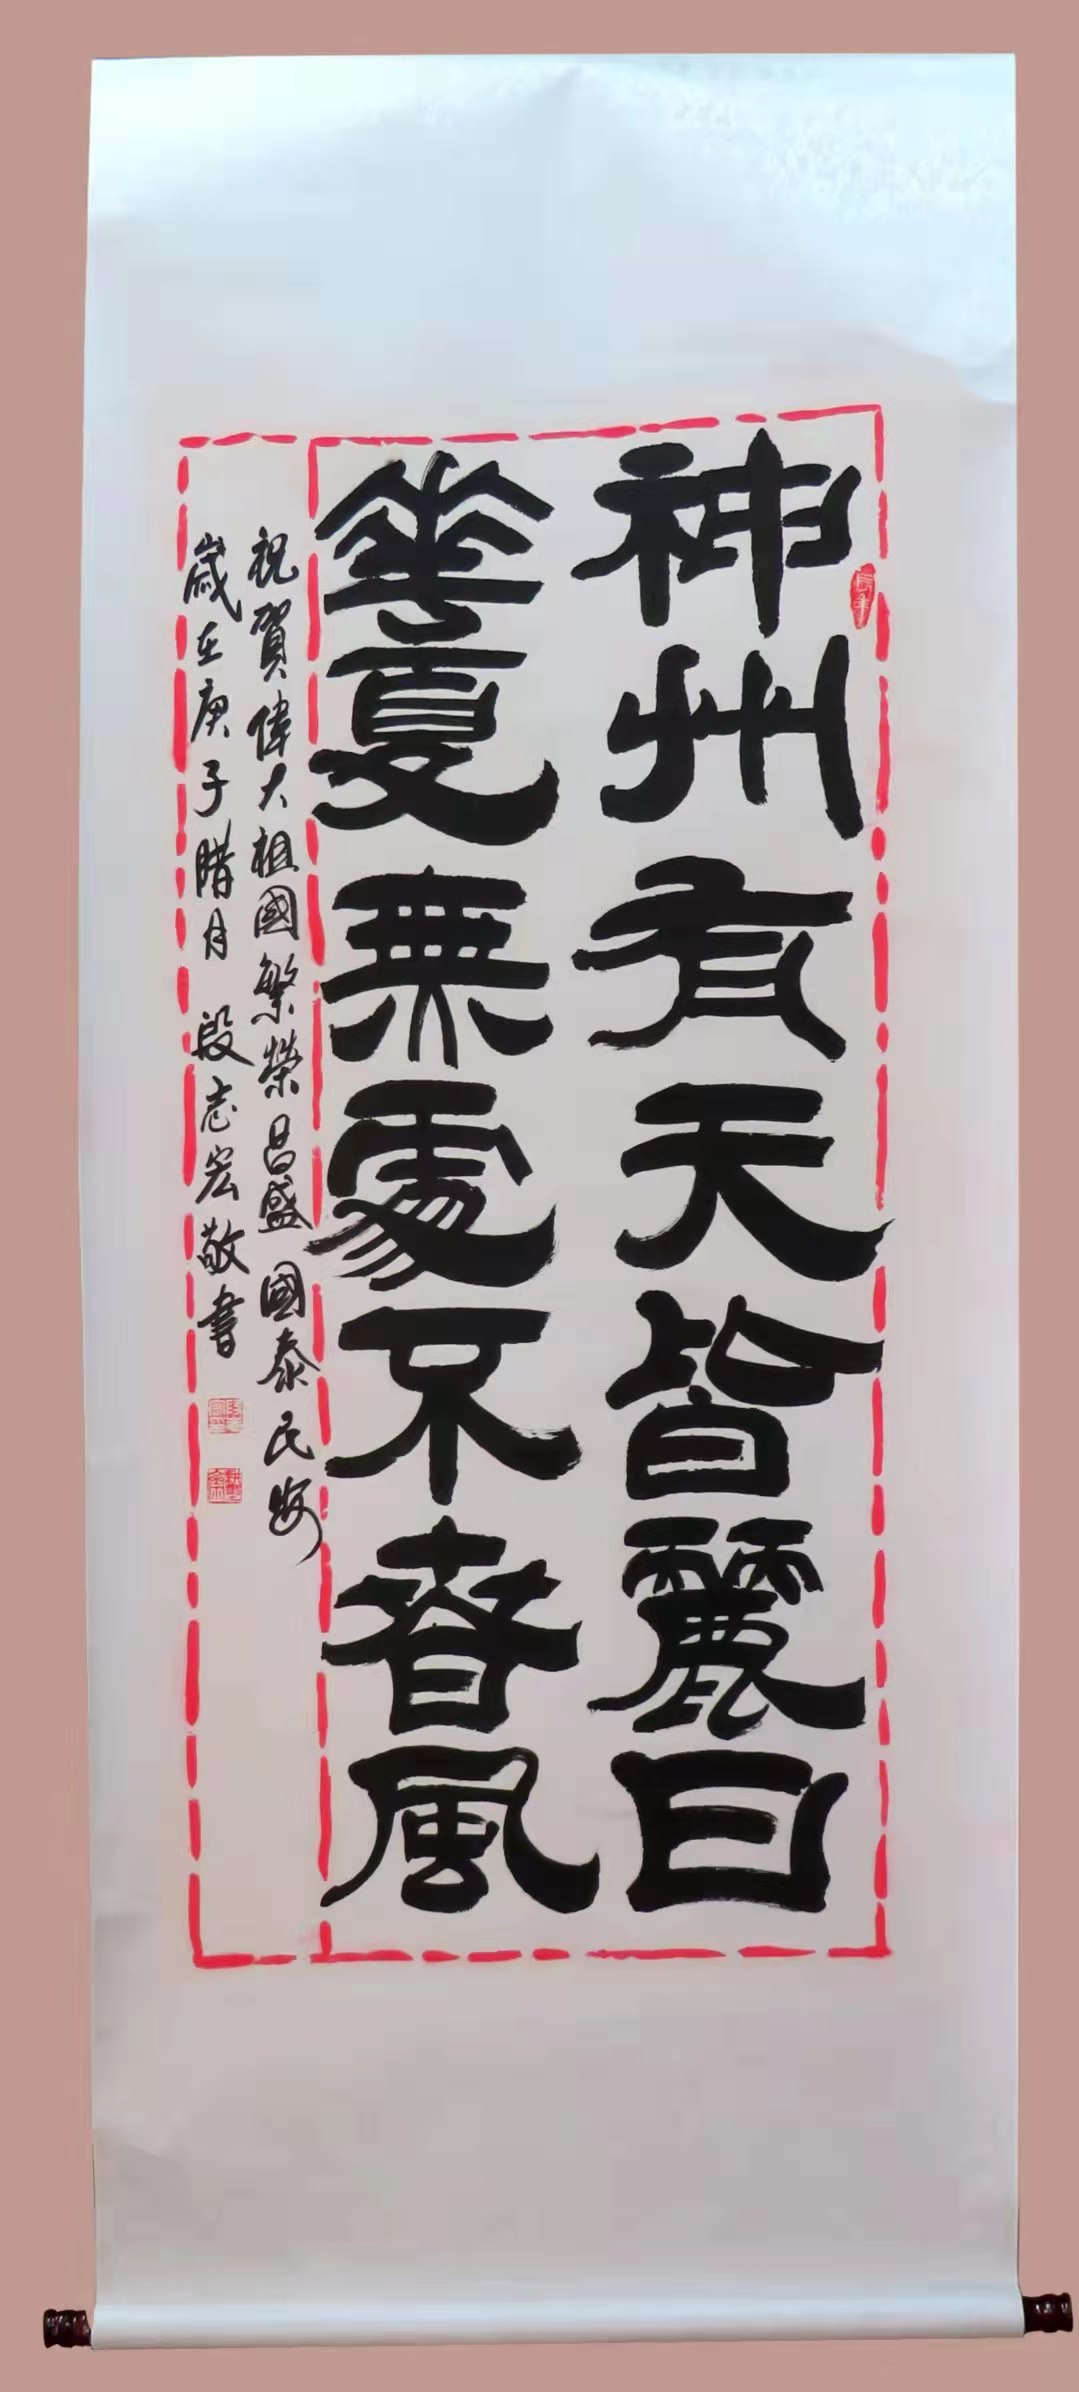 神州有天皆麗日
華夏無處不春風
祝賀偉大祖國繁榮昌盛 國泰民安
歲在庚子腊月 段志宏敬書